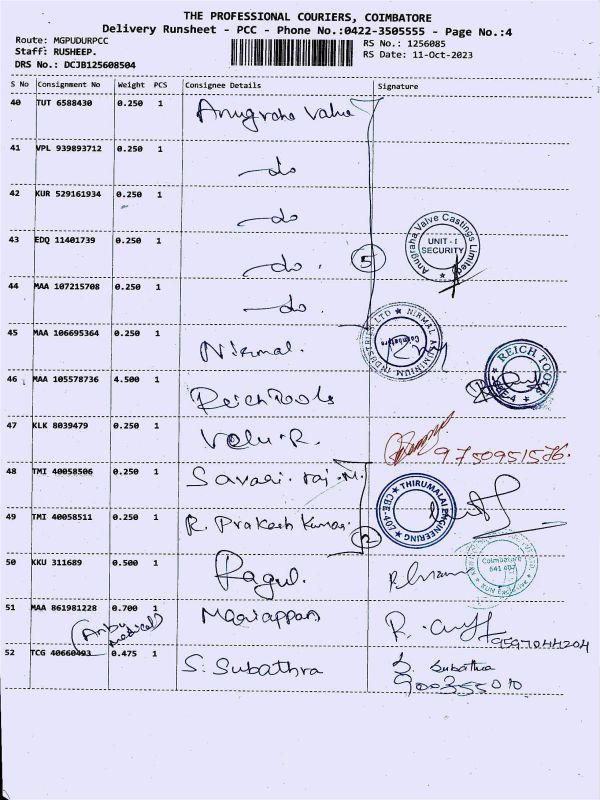 THE PROFESSIONAL COURIERS, COIMBATORE
Delivery Runsheet - PCC - Phone No.:0422-3505555 - Page No.:4
Route: MGPUDURPCC
Staff: RUSHEEP.
DRS No.: DCJB125608504
RS No.: 1256085
RS Date: 11-Oct-2023
S No Consignment No Weight PCS Consignee Details Signature
40 TUT 6588430 0.250 1 Anugraha Valve
41 VPL 939893712 0.250 1 do
42 KUR 529161934 0.250 1 do
43 EDQ 11401739 0.250 1 do. 5
Anugraha Valve Castings Limited
UNIT - I
SECURITY
44 MAA 107215708 0.250 1 do.
45 MAA 106695364 0.250 1 Nirmal.
NIRMAL ALUMINIUM INDUSTRIES LTD
Coimbatore
46 MAA 105578736 4.500 1 Reich Tools
REICH TOOLS
47 KLK 8039479 0.250 1 Velu.R.
48 TMI 40058506 0.250 1 Savari.raj.M.
49 TMI 40058511 0.250 1 R. Prakash Kumar. 2
THIRUMALAI ENGINEERING
50 KKU 311689 0.500 1 Ragul.
Coimbatore
51 MAA 861981228 0.700 1 Mariappan
(Anbu medical)
9597044204
52 TCG 40660493 0.475 1 S. Subathra S. Subathra